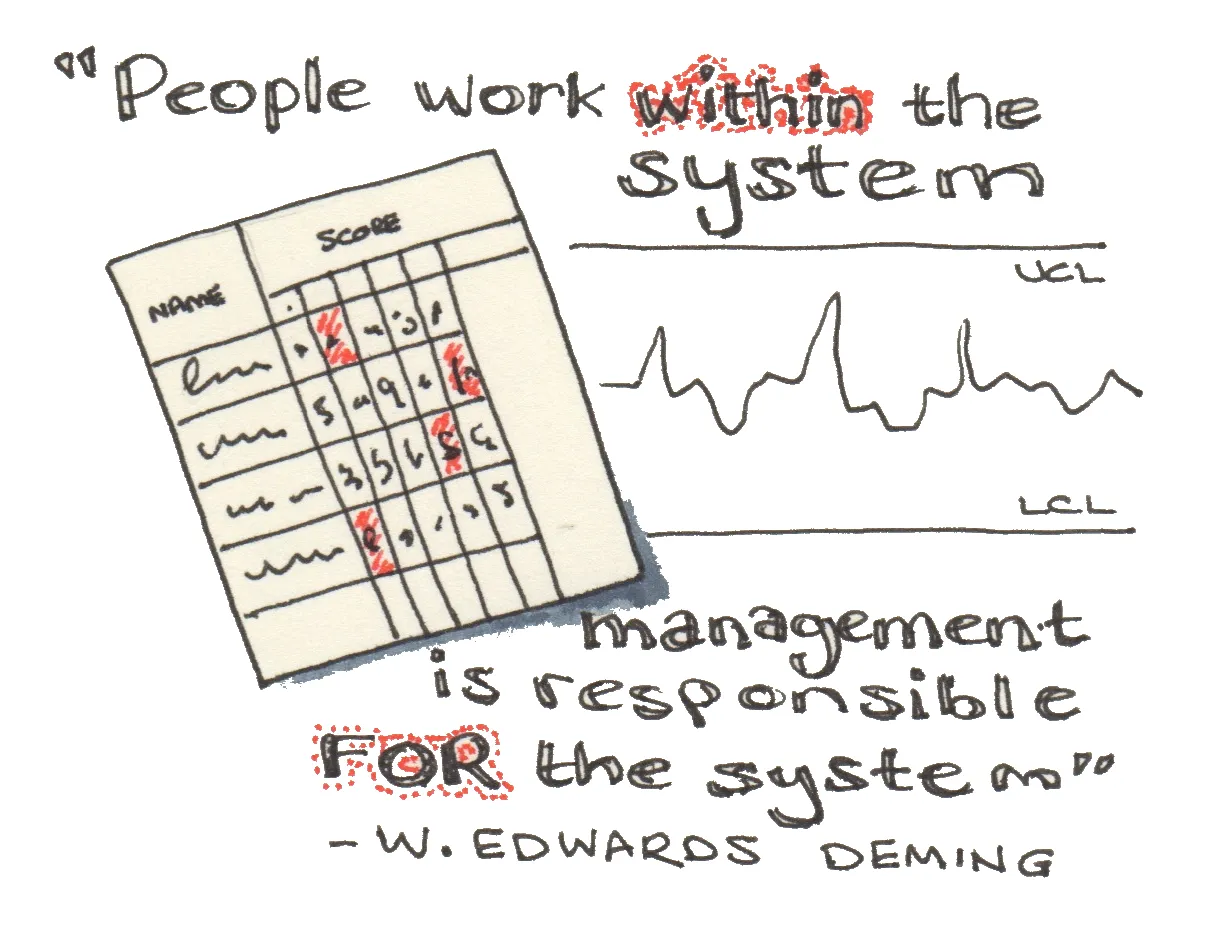 “People work within the
system
SCORE
NAME
UCL
LCL
management
is responsible
FOR the system”
- W. EDWARDS DEMING